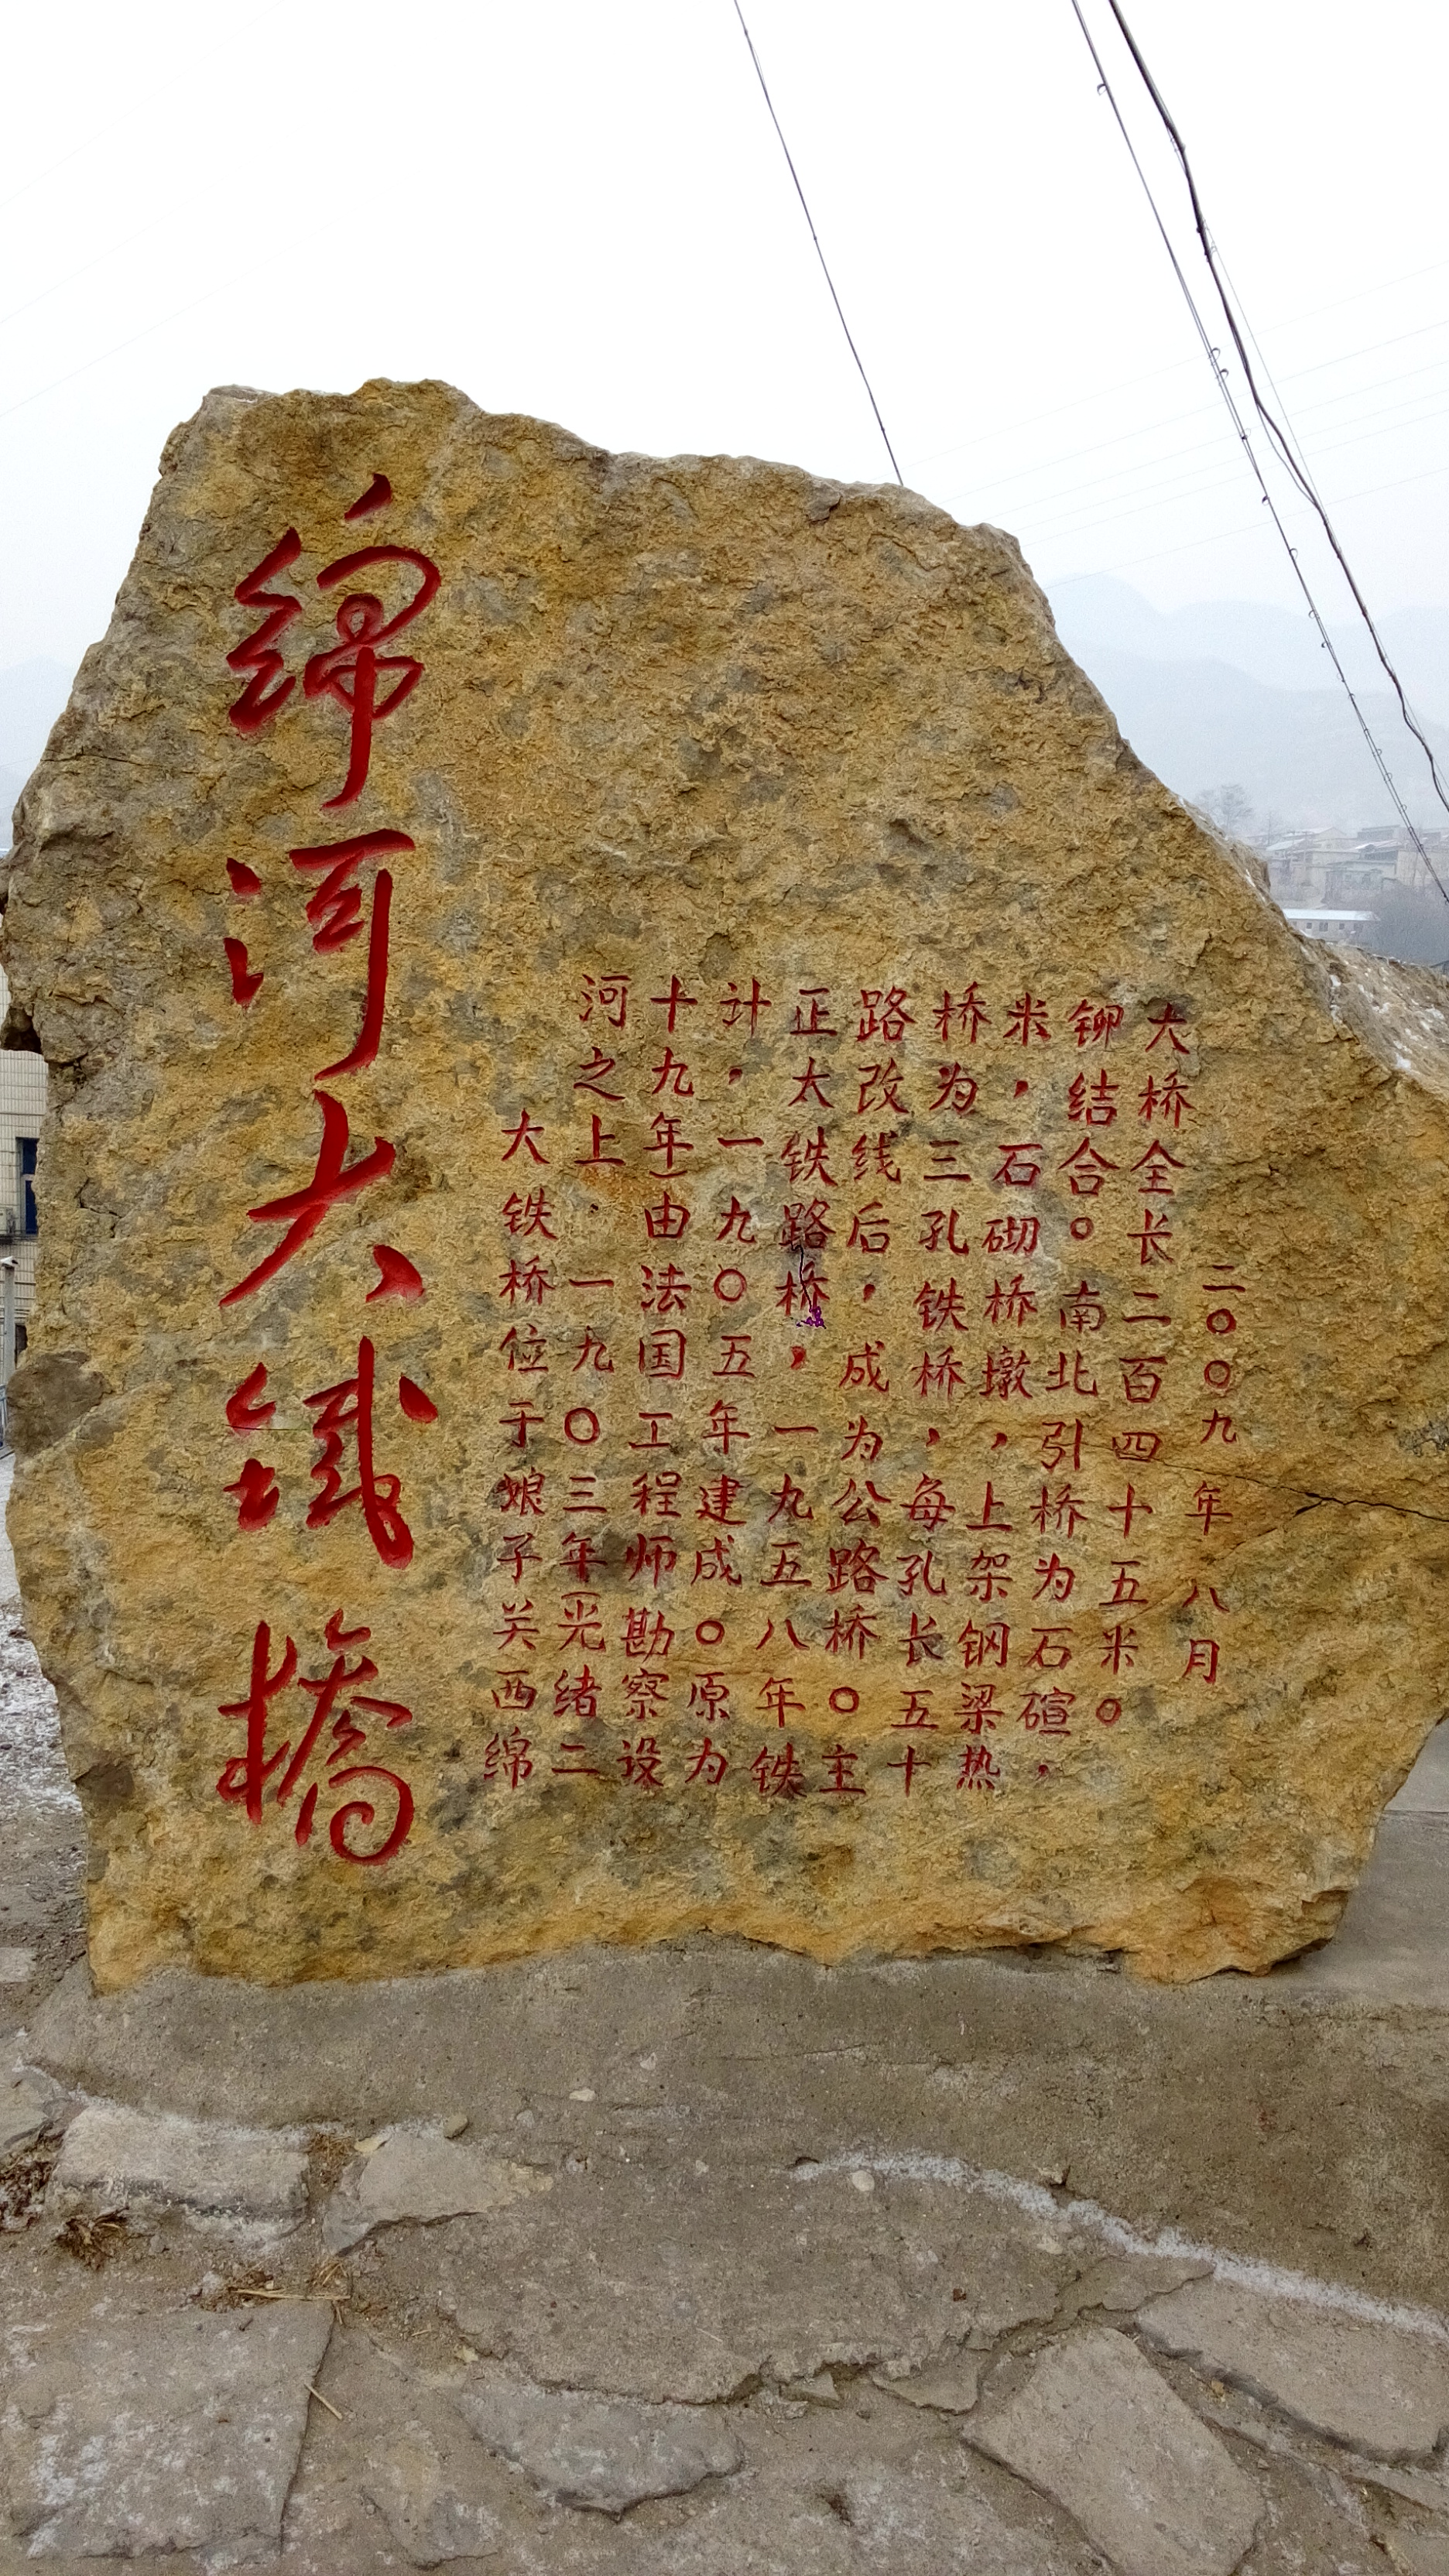 綿河大鐵橋
大铁桥位于娘子关西绵
河之上.一九〇三年(光绪二
十九年)由法国工程师勘察设
计,一九〇五年建成。原为
正大铁路桥,一九五八年铁
路改线后,成为公路桥。主
桥为三孔铁桥,每孔长五十
米,石砌桥墩,上架钢梁热
铆结合。南北引桥为石碹,
大桥全长二百四十五米。
二〇〇九年八月